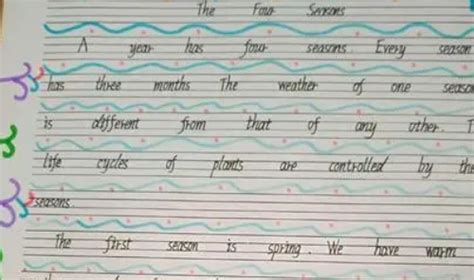 The Four Seasons
A year has four seasons. Every season
has three months The weather of one seaso
is different from that of any other. T
life cycles of plants are controlled by the
seasons.
The first season is spring. We have warm